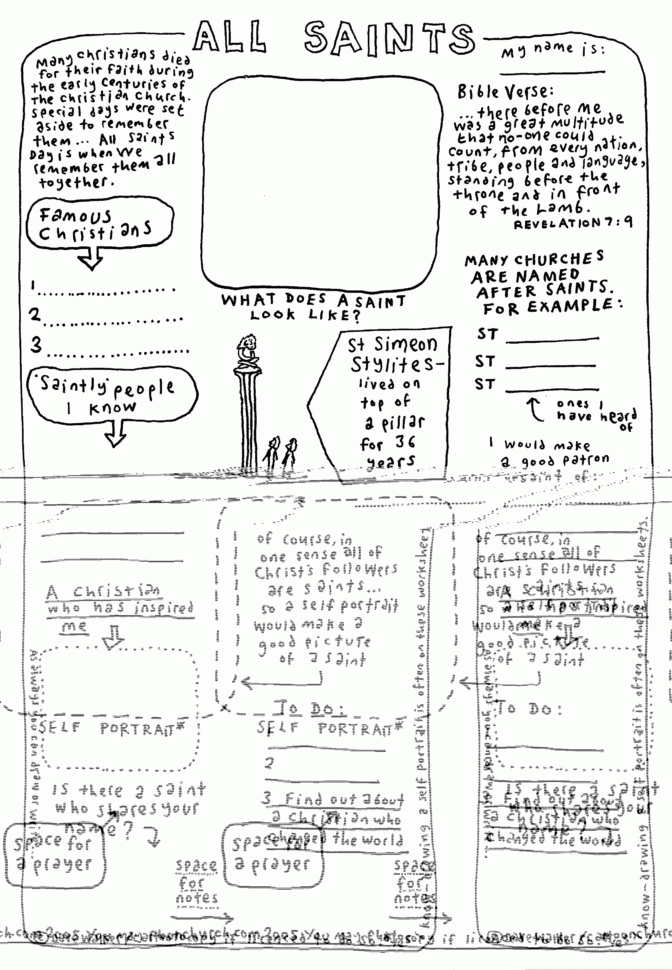 ALL SAINTS
Many Christians died
for their faith during
the early centuries of
the Christian Church.
Special days were set
aside to remember
them... All Saints
Day is when we
remember them all
together.
Famous
Christians
1
2
3
'Saintly' people
I know
WHAT DOES A SAINT
LOOK LIKE?
St Simeon
Stylites–
lived on
top of
a pillar
for 36
years
My name is:
Bible Verse:
...there before me
was a great multitude
that no-one could
count, from every nation,
tribe, people and language,
standing before the
throne and in front
of the Lamb.
REVELATION 7:9
MANY CHURCHES
ARE NAMED
AFTER SAINTS.
FOR EXAMPLE:
ST
ST
ST
ones I
have heard
of
I would make
a good patron
saint of:
A Christian
who has inspired
me
As always you can draw or write...
SELF PORTRAIT*
Is there a saint
who shares your
name?
space for
a prayer
space
for
notes
of course, in
one sense all of
Christ's followers
are saints...
so a self portrait
would make a
good picture
of a saint
To Do:
SELF PORTRAIT*
2
3 Find out about
a Christian who
changed the world
space for
a prayer
space
for
notes
know-drawing a self portrait is often on these worksheets.
of course, in
one sense all of
Christ's followers
so
would make a
good picture
of a saint
To Do:
Is there a saint
Find out about
a Christian who
changed the world
know-drawing a self portrait is often on these worksheets.